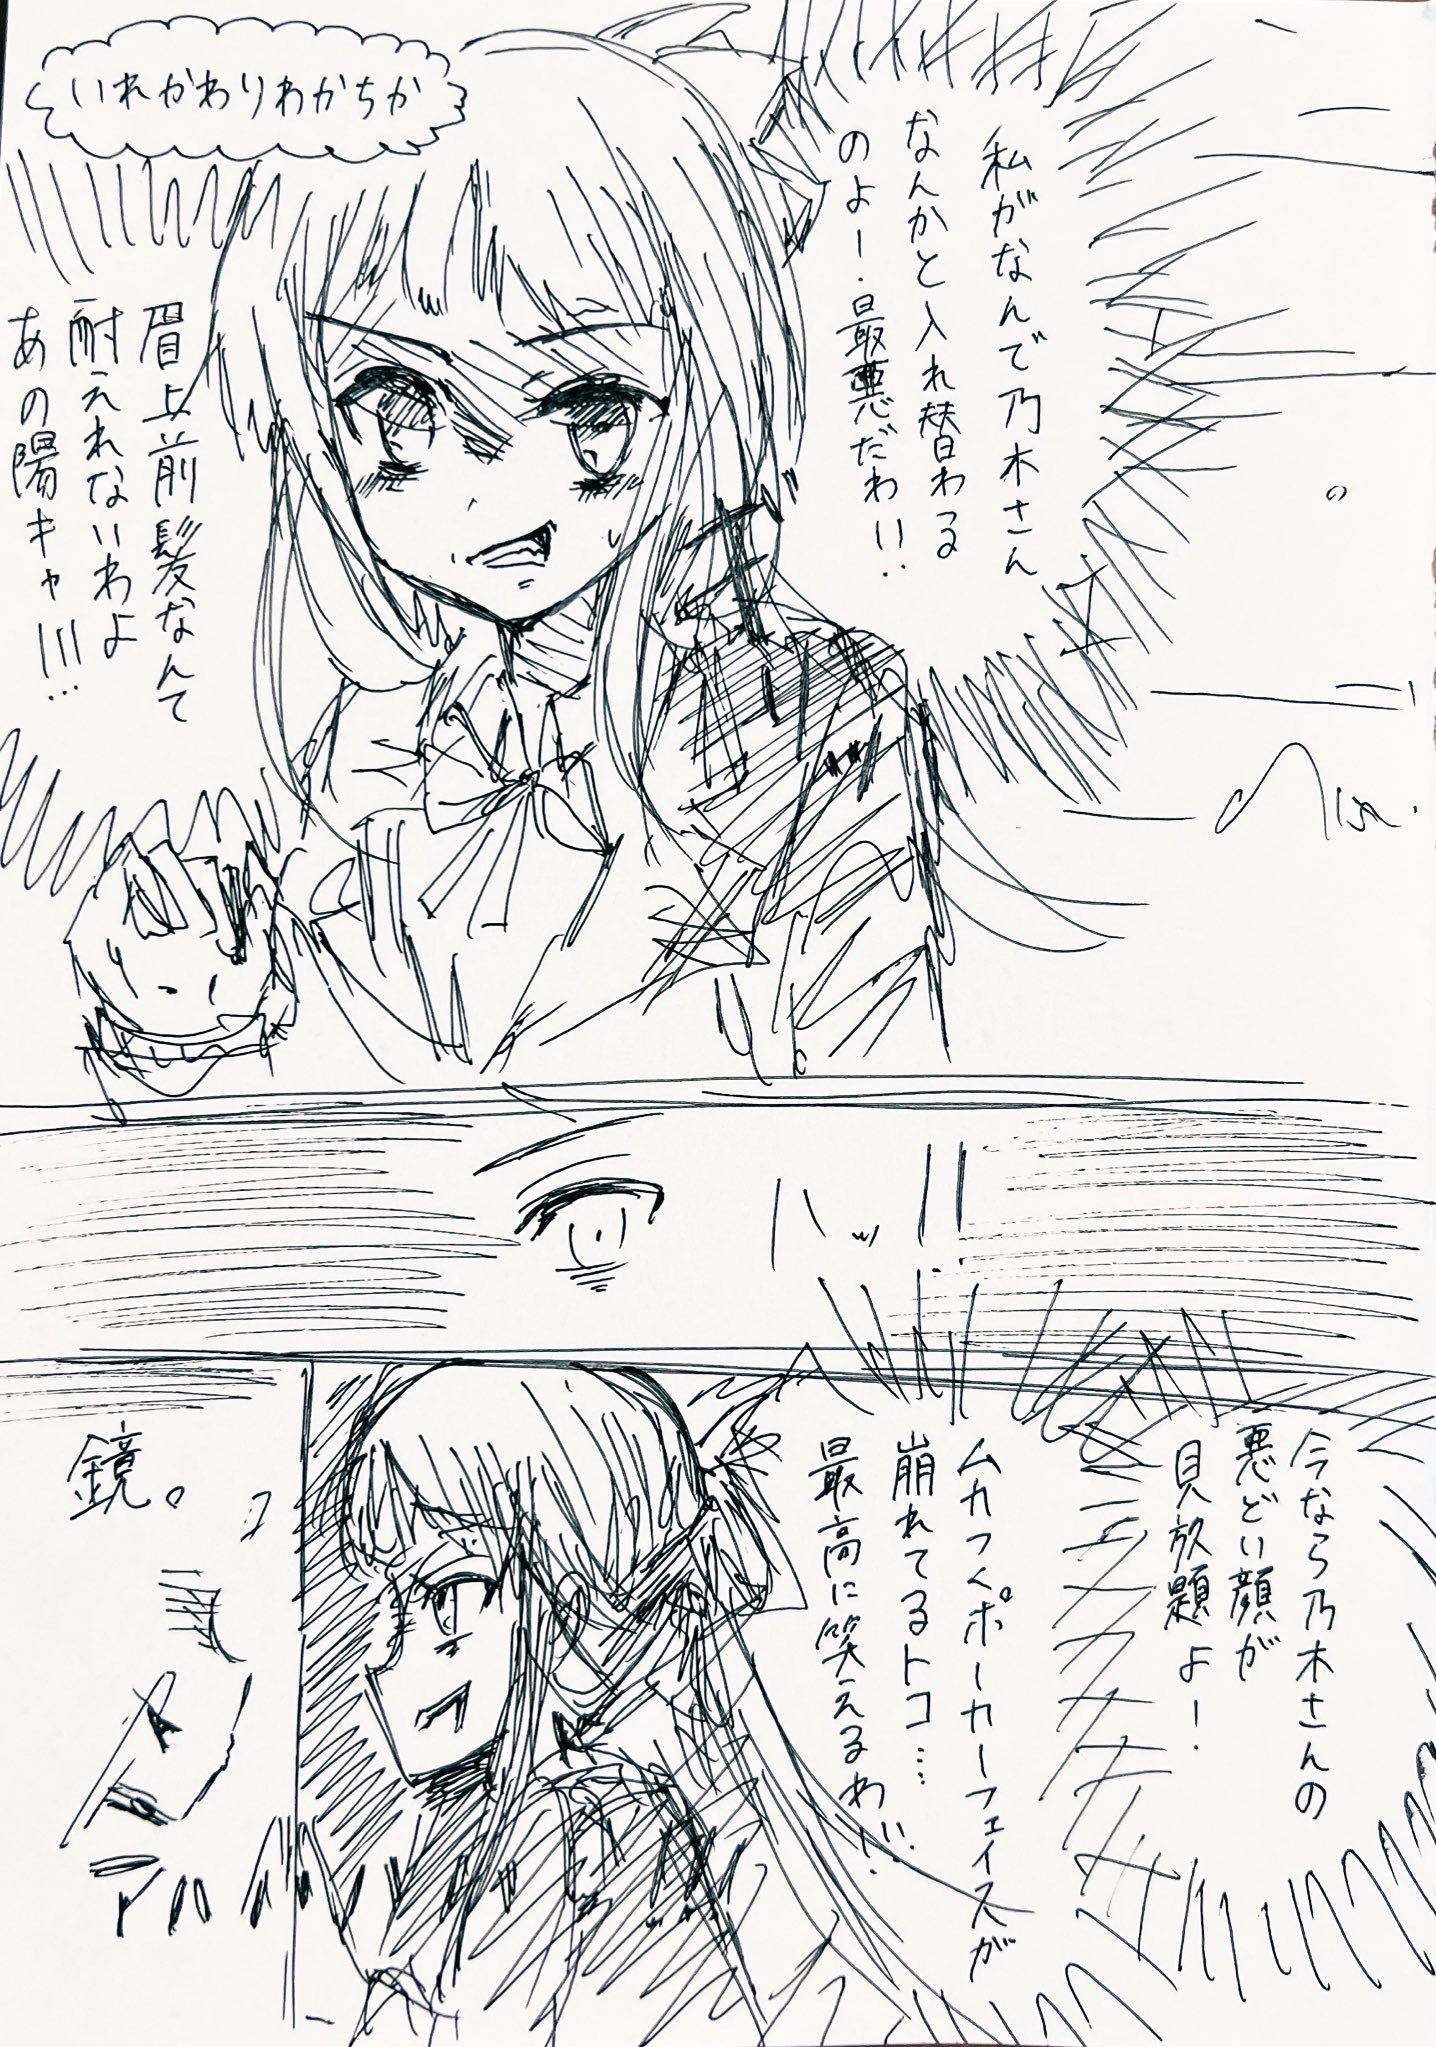 いれかわりわかちか
私がなんで乃木さん
なんかと入れ替わる
のよ！最悪だわ!!
眉上前髪なんて
耐えれないわよ
あの陽キャ!!!…
ハッ!!
今なら乃木さんの
悪どい顔が
見放題よ！
ムカつくポーカーフェイスが
崩れてるトコ…
最高に笑えるわ!!!
鏡。